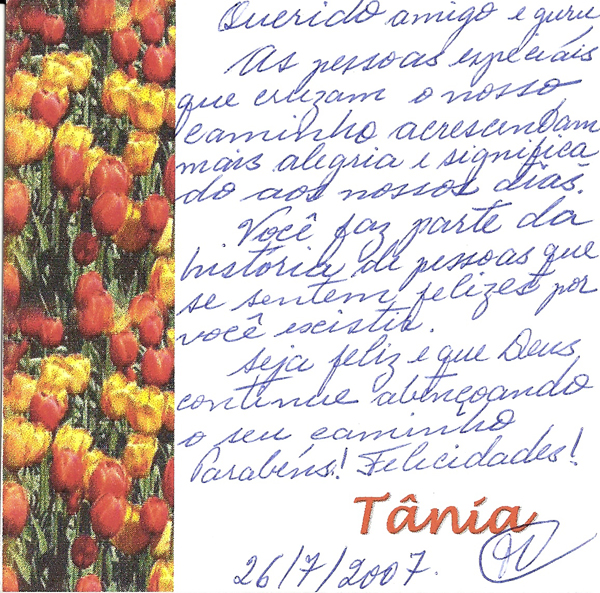 Querido amigo e guru
As pessoas especiais
que cruzam o nosso
caminho acrescentam
mais alegria e significa
do aos nossos dias.
Você faz parte da
história de pessoas que
se sentem felizes por
você existir.
Seja feliz e que Deus
continue abençoando
o seu caminho
Parabéns! Felicidades!
Tânia
26/7/2007.